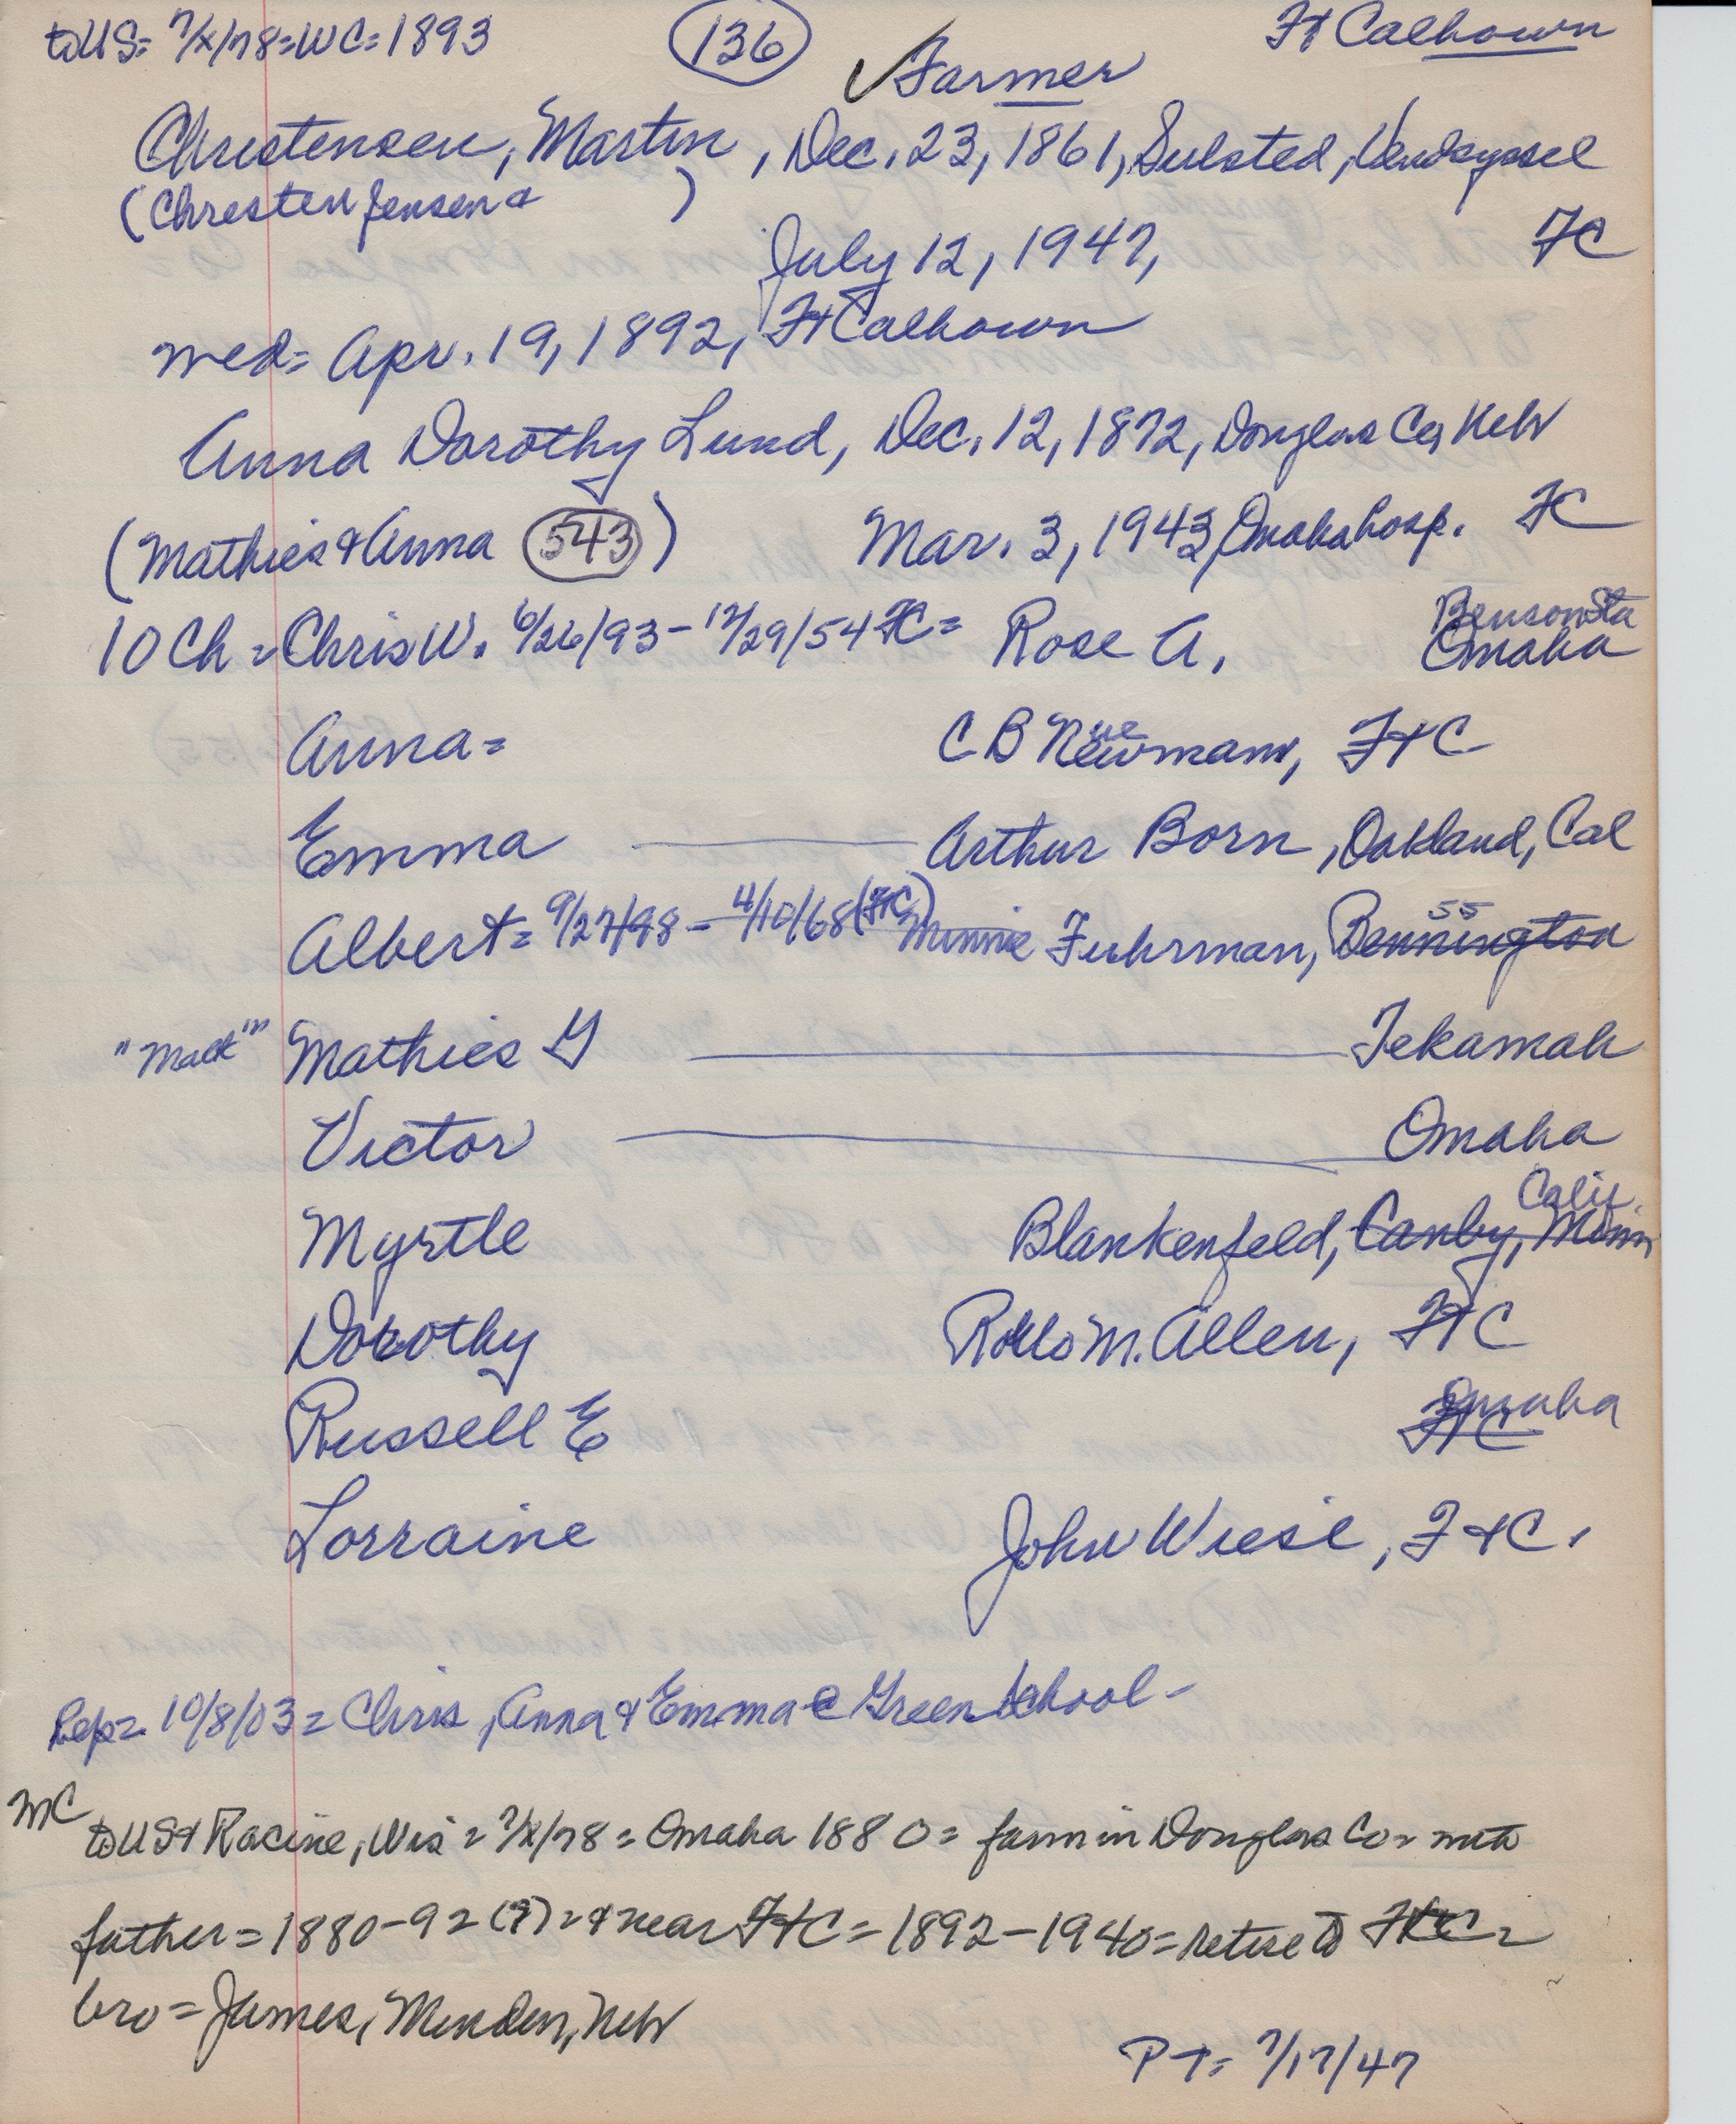 to US= 7/X/78=WC=1893 (136) Ft Calhoun
✓Farmer
Christensen, Martin, Dec. 23, 1861, Sulsted, Vendsyssel
(Chresten Jensen & )
July 12, 1947, FC
wed= Apr. 19, 1892, Ft Calhoun
Anna Dorothy Lund, Dec. 12, 1872, Douglas Co, Neb
(Mathies & Anna (543)) Mar. 3, 1943, Omaha hosp. FC
Benson Sta
10 Ch = Chris W. 6/26/93 - 12/29/54 FC = Rose A. Omaha
Anna = C B Newmann, FtC
Emma — Arthur Born, Oakland, Cal
Albert = 9/27/98 - 4/10/68 (FtC) Minnie Fuhrman, Bennington
55
"Matt" Mathies G — Tekamah
Victor — Omaha
Calif.
Myrtle Blankenfeld, Canby, Minn
Dorothy Rollo M. Allen, FtC
Omaha
Russell E FtC
Lorraine John Wiese, FtC.
Rep= 10/8/03 = Chris, Anna & Emma @ Green School -
MC to US & Racine, Wis = 7/X/78 = Omaha 1880 = farm in Douglas Co = with
father = 1880-92 (?) = & near FtC = 1892-1940 = retire to FtC =
bro = James, Minden, Neb
PT= 7/17/47